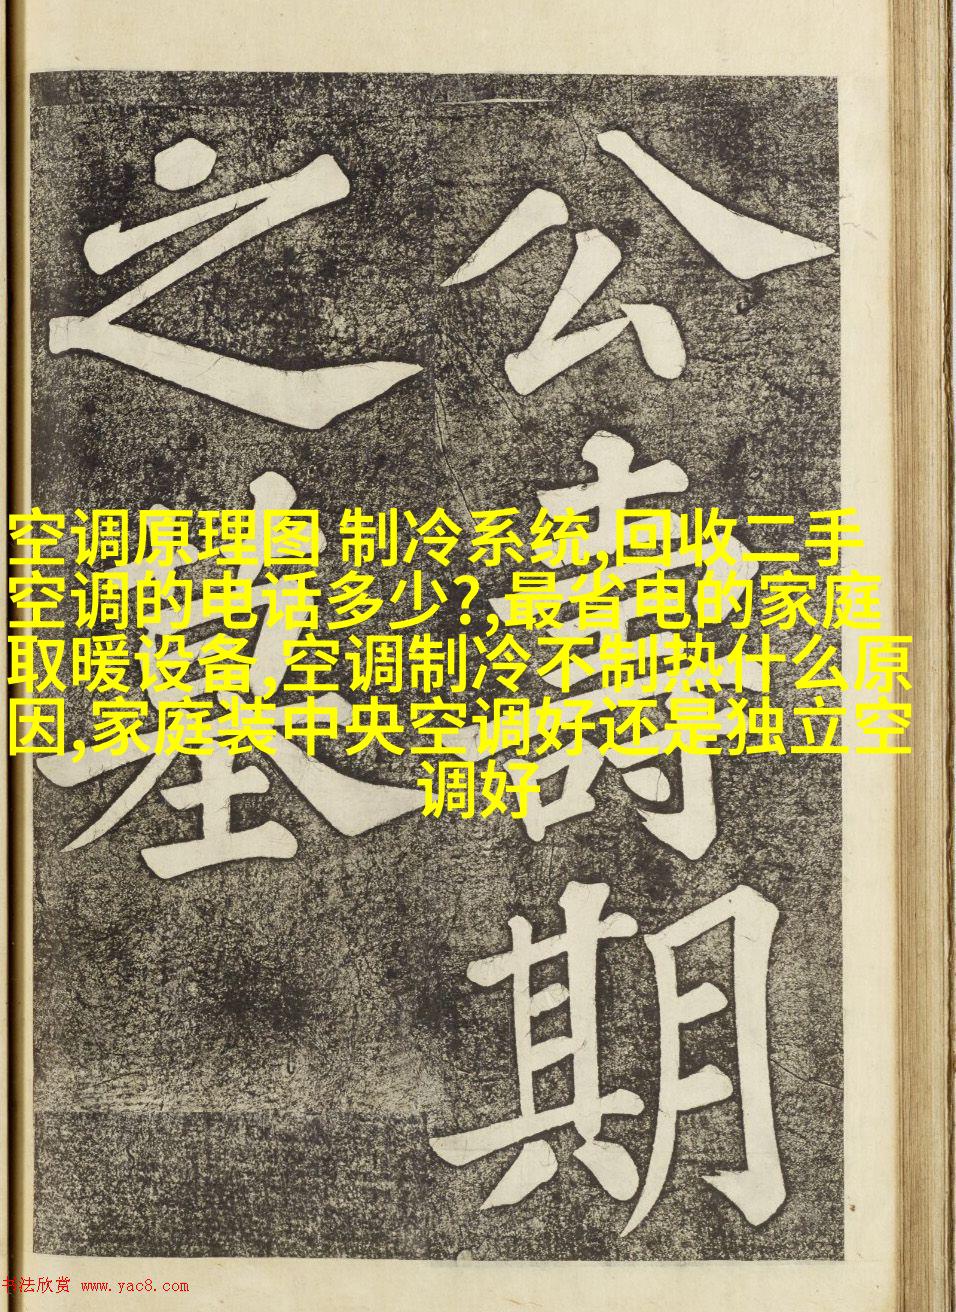 公壽期
之墓
空调原理图 制冷系统,回收二手
空调的电话多少?,最省电的家庭
取暖设备,空调制冷不制热什么原
因,家庭装中央空调好还是独立空
调好
书法欣赏 www.yac8.com